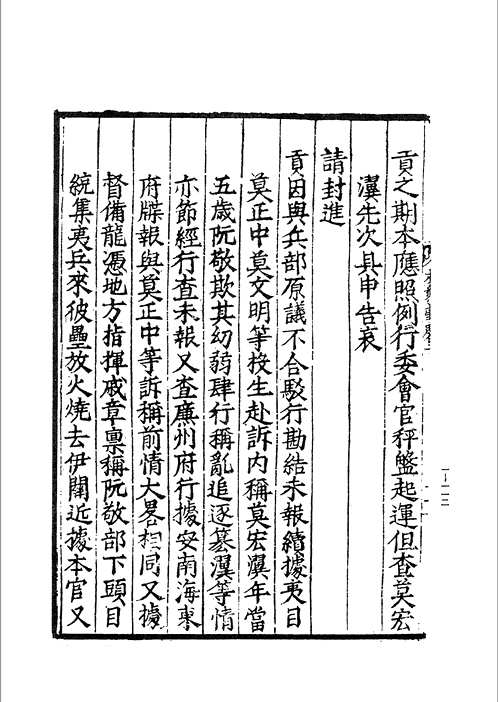 貢之期本應照例行委會官秤盤起運但查莫宏
瀷先次具申告哀
請封進
貢因與兵部原議不合駁行勘結未報續據夷目
莫正中莫文明等投生赴訴內稱莫宏瀷年當
五歲阮敬欺其幼弱肆行稱亂追逐篡瀷等情
亦節經行查未報又查廉州府行據安南海東
府牒報與莫正中等訴稱前情大畧相同又據
督備龍憑地方指揮戚章稟稱阮敬部下頭目
統集夷兵來彼壘放火燒去伊閣近據本官又